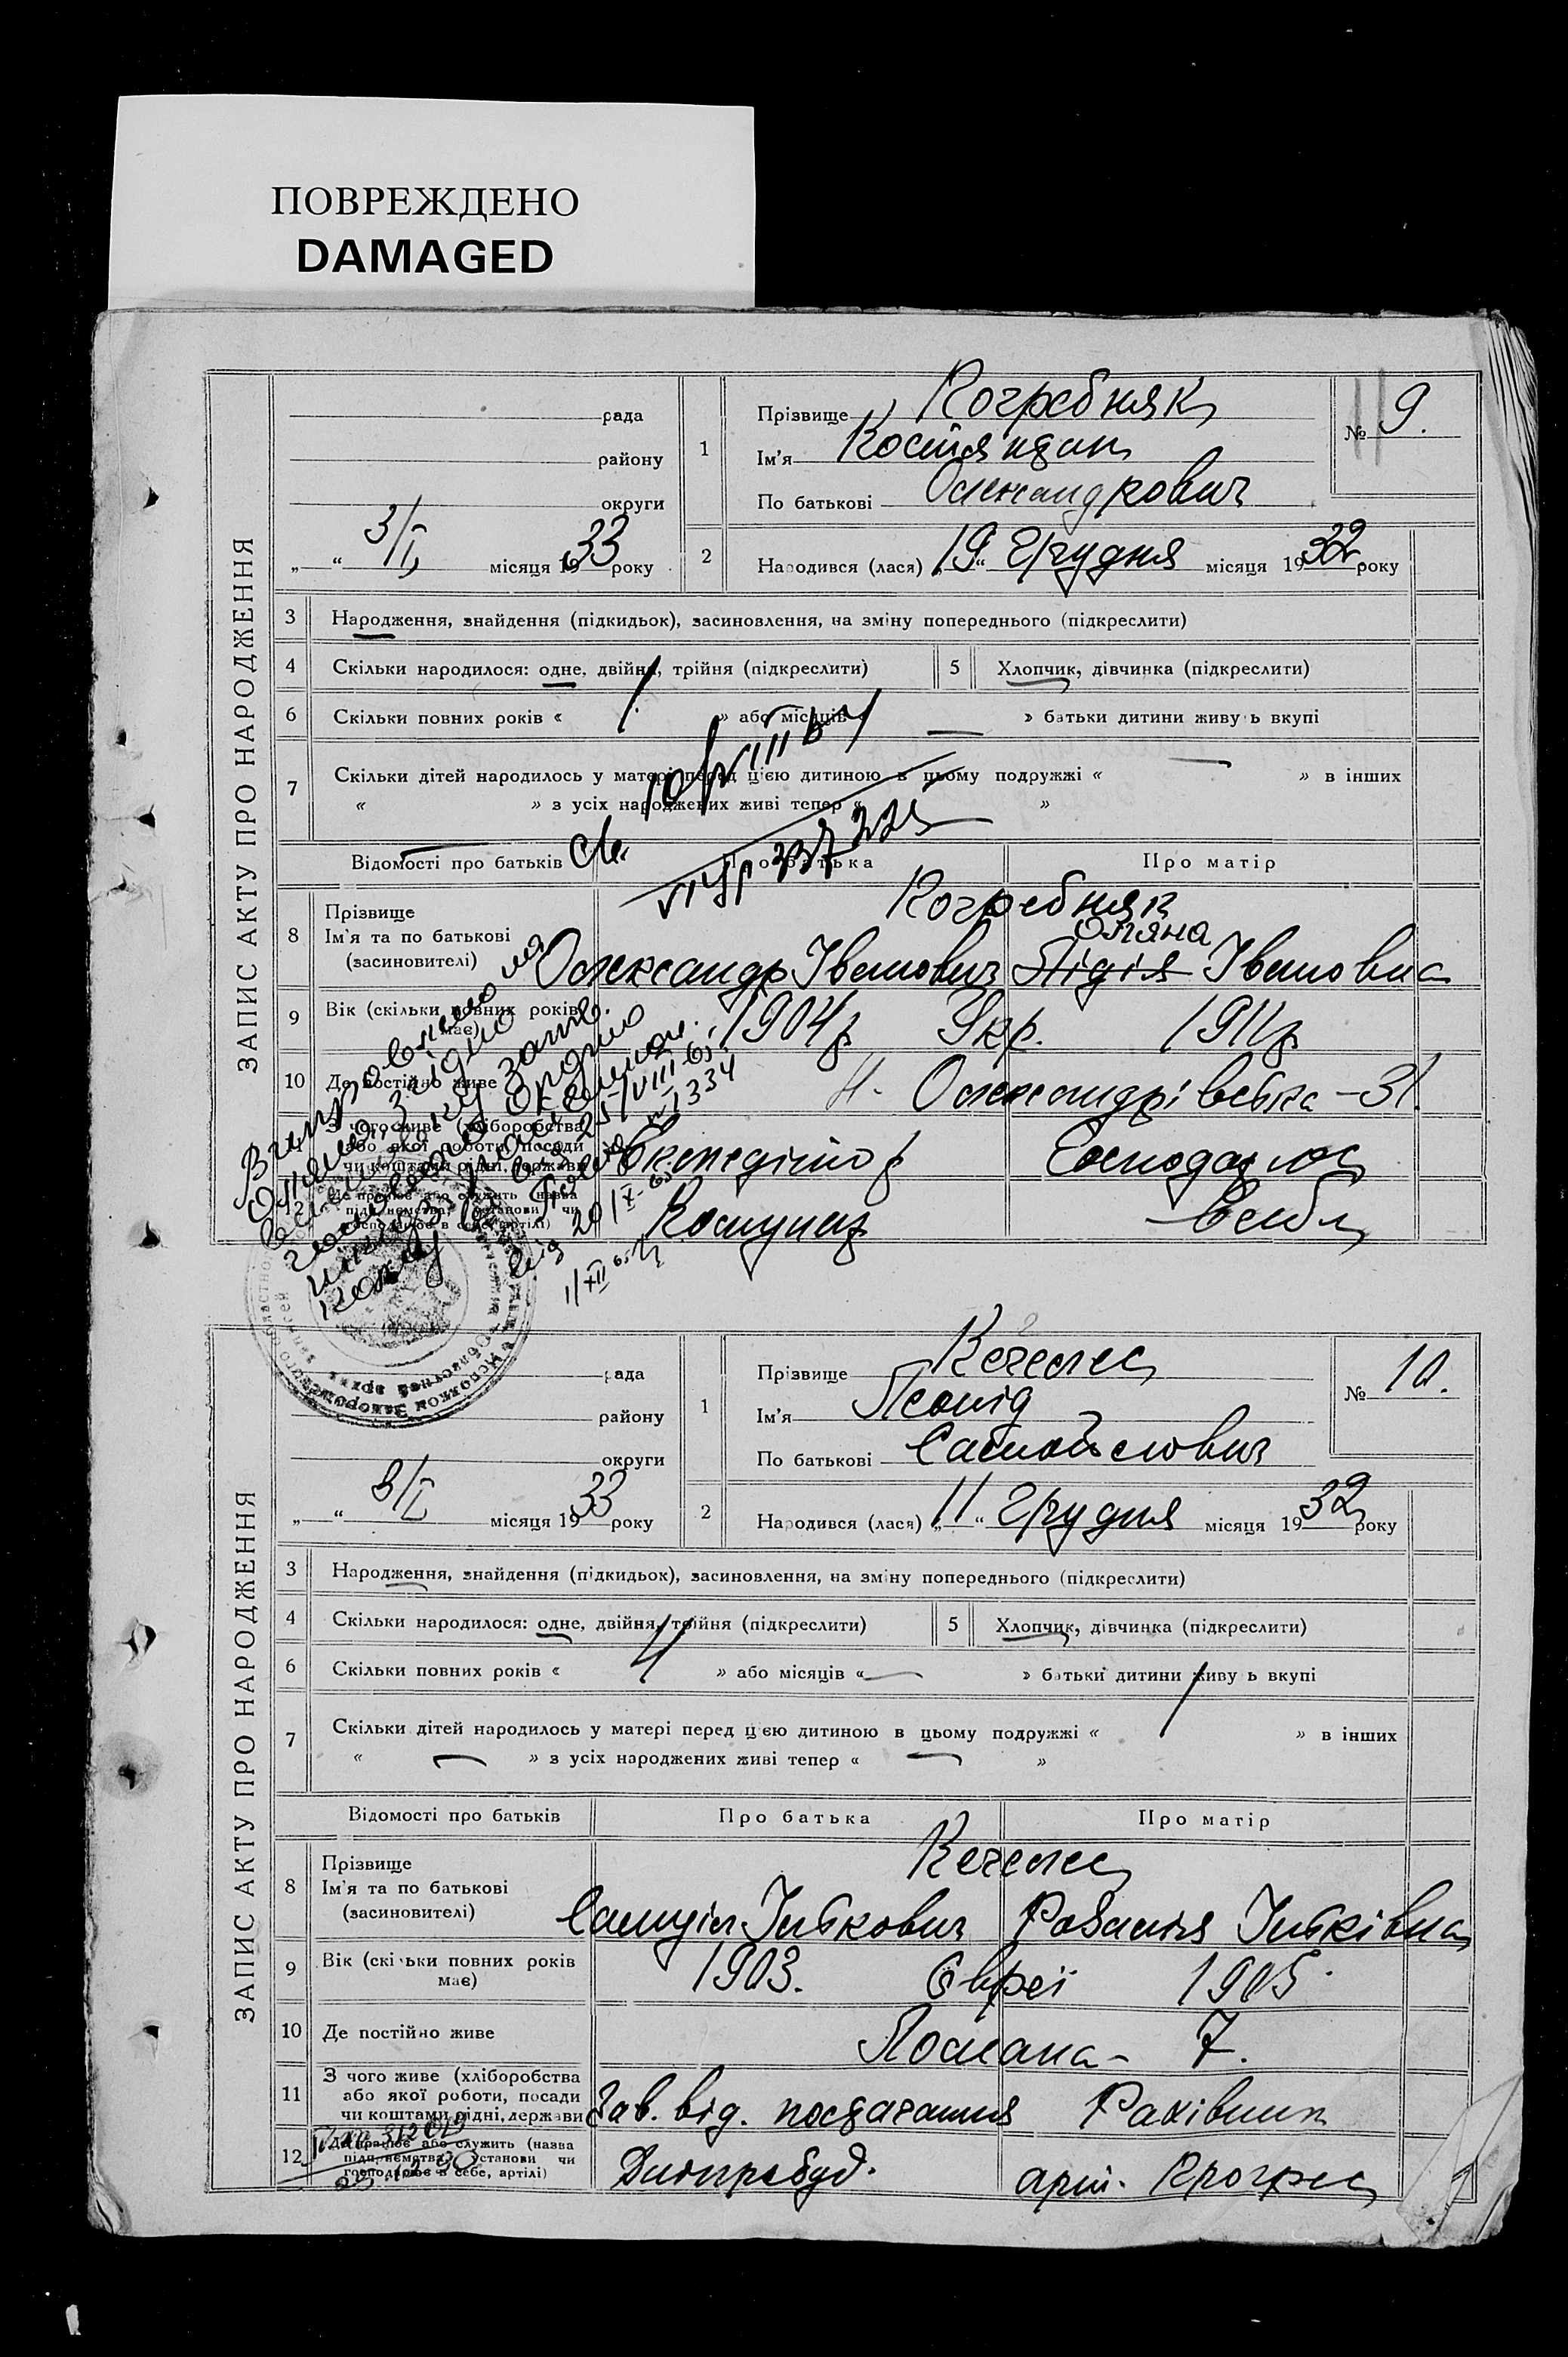 ПОВРЕЖДЕНО
DAMAGED
ЗАПИС АКТУ ПРО НАРОДЖЕННЯ
рада
району
округи
„ “ 3/I місяця 1933 року
1
Прізвище Погребняк
Ім'я Костянтин
По батькові Олександрович
№ 9.
2
Народився (лася) „19“ Грудня місяця 1932 року
3 Народження, знайдення (підкидьок), засиновлення, на зміну попереднього (підкреслити)
4 Скільки народилося: одне, двійня, трійня (підкреслити)
5 Хлопчик, дівчинка (підкреслити)
6 Скільки повних років « 1 » або місяців « — » батьки дитини живуть вкупі
7 Скільки дітей народилось у матері перед цією дитиною в цьому подружжі « — » в інших
« » з усіх народжених живі тепер « »
Відомості про батьків
Про батька
Про матір
8 Прізвище
Ім'я та по батькові
(засиновителі)
Погребняк
Оляна
Олександр Іванович
Лідія Івановна
9 Вік (скільки повних років має)
1904 р Укр. 1911 р
10 Де постійно живе
Олександрівська - 31.
11 З чого живе (хліборобства
або якої роботи, посади
чи коштами рідні, держави
Експедітор
Господарює
12 Де працює або служить (назва
підприємства, установи чи
господарює в себе, артілі)
Комунар
в себе
від 25/VIII-65.
№ 1334
від 20/X-65
1/XII 65
ЗАПИС АКТУ ПРО НАРОДЖЕННЯ
рада
району
округи
„ “ 3/I місяця 1933 року
1
Прізвище Кегелес
Ім'я Леонід
По батькові Самойлович
№ 10.
2
Народився (лася) „11“ Грудня місяця 1932 року
3 Народження, знайдення (підкидьок), засиновлення, на зміну попереднього (підкреслити)
4 Скільки народилося: одне, двійня, трійня (підкреслити)
5 Хлопчик, дівчинка (підкреслити)
6 Скільки повних років « 4 » або місяців « — » батьки дитини живуть вкупі
7 Скільки дітей народилось у матері перед цією дитиною в цьому подружжі « 1 » в інших
« — » з усіх народжених живі тепер « — »
Відомості про батьків
Про батька
Про матір
8 Прізвище
Ім'я та по батькові
(засиновителі)
Кегелес
Самуіл Іцкович
Розалія Іцківна
9 Вік (скільки повних років
має)
1903. Євреї 1905
10 Де постійно живе
7.
11 З чого живе (хліборобства
або якої роботи, посади
чи коштами рідні, держави
Зав. від. постачання
Рахівник
12 Де працює або служить (назва
підприємства, установи чи
господарює в себе, артілі)
Дніпробуд.
арт. Прогрес